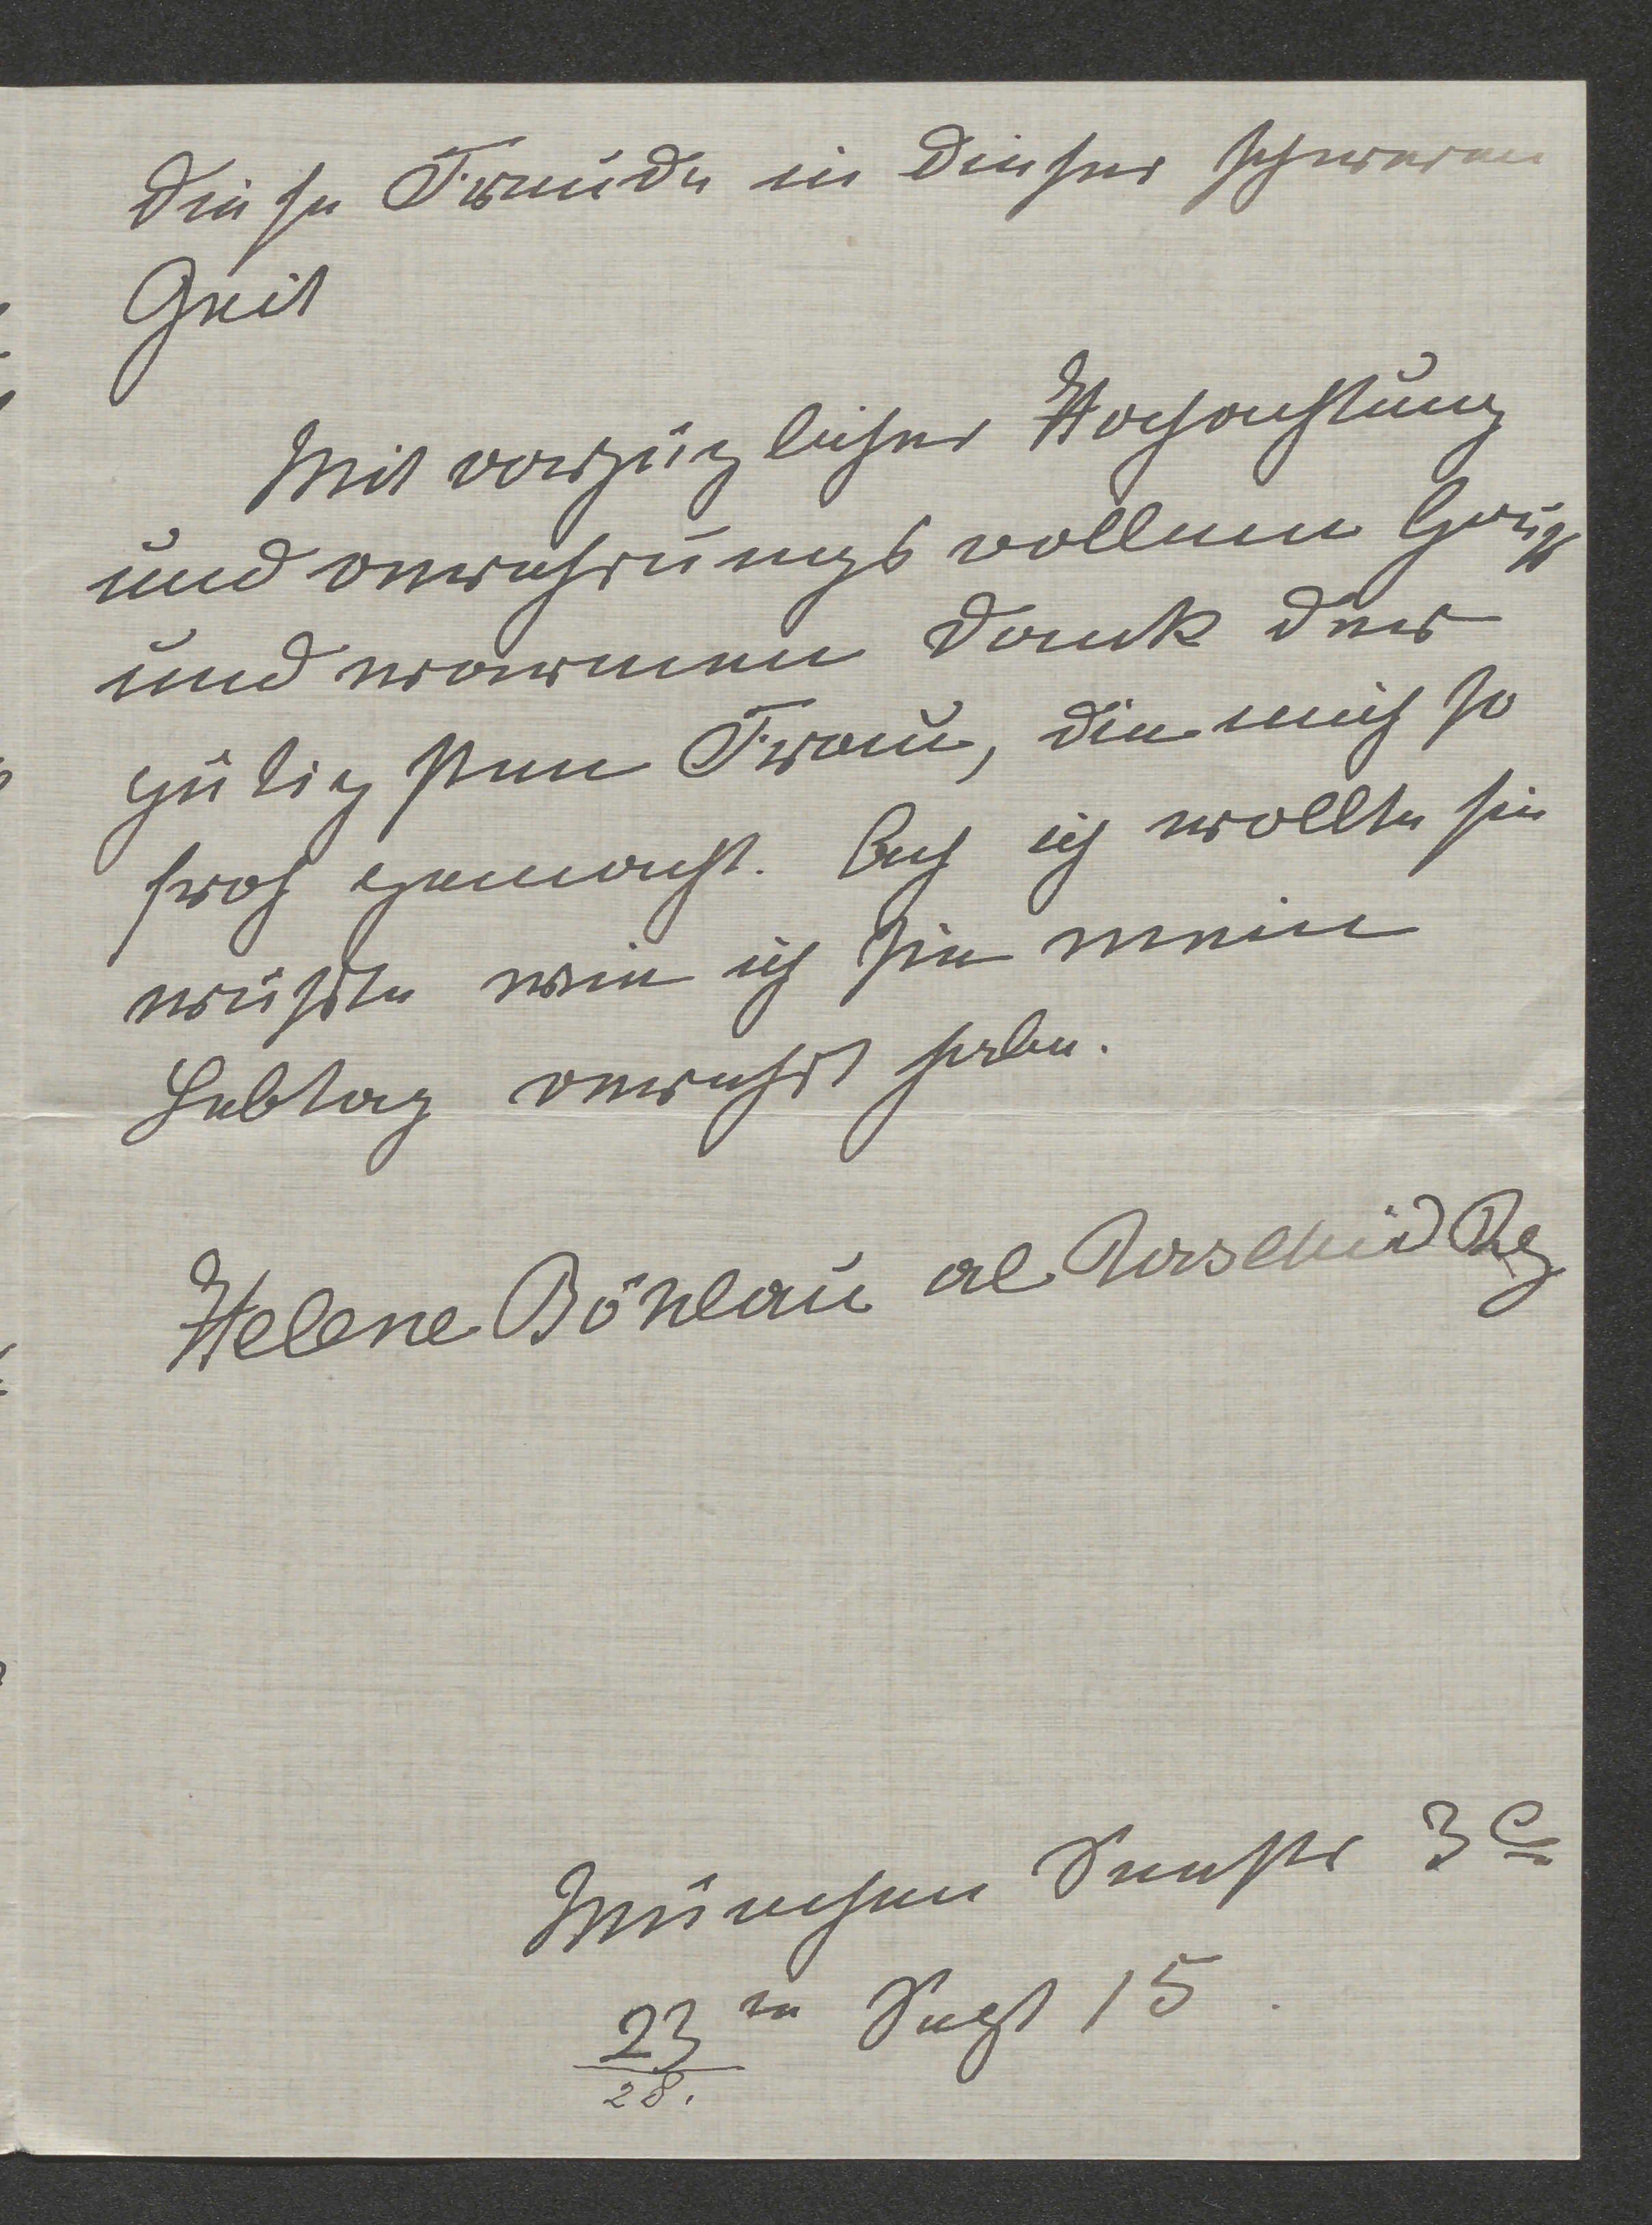 diese Freude in dieser schweren
Zeit
Mit vorzüglicher Hochachtung
und verehrungsvollem Gruß
und warmem Dank der
gütigsten Frau, die mich so
froh gemacht. Ach ich wollte sie
wüßte wie ich sie mein
Lebtag verehrt habe.
Helene Böhlau al Raschid Bey
München Seestr 3 c
23 n Sept 15.
28.